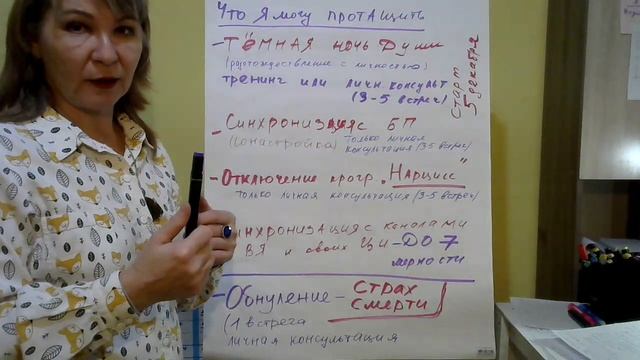 Что я могу протащить
- Тёмная ночь Души
(разотождествление с личностью)
тренинг или личн консульт
(3-5 встреч)
Старт
5 декабря
- Синхронизация с БП
(сонастройка) только личная
консультация (3-5 встреч)
- Отключение прогр. „Нарцисс"
только личная консультация (3-5 встреч)
инхронизация с каналами
ВЯ и своих Ци - ДО 7
мерности
- Обнуление - Страх
Смерти
(1 встреча
личная консультация